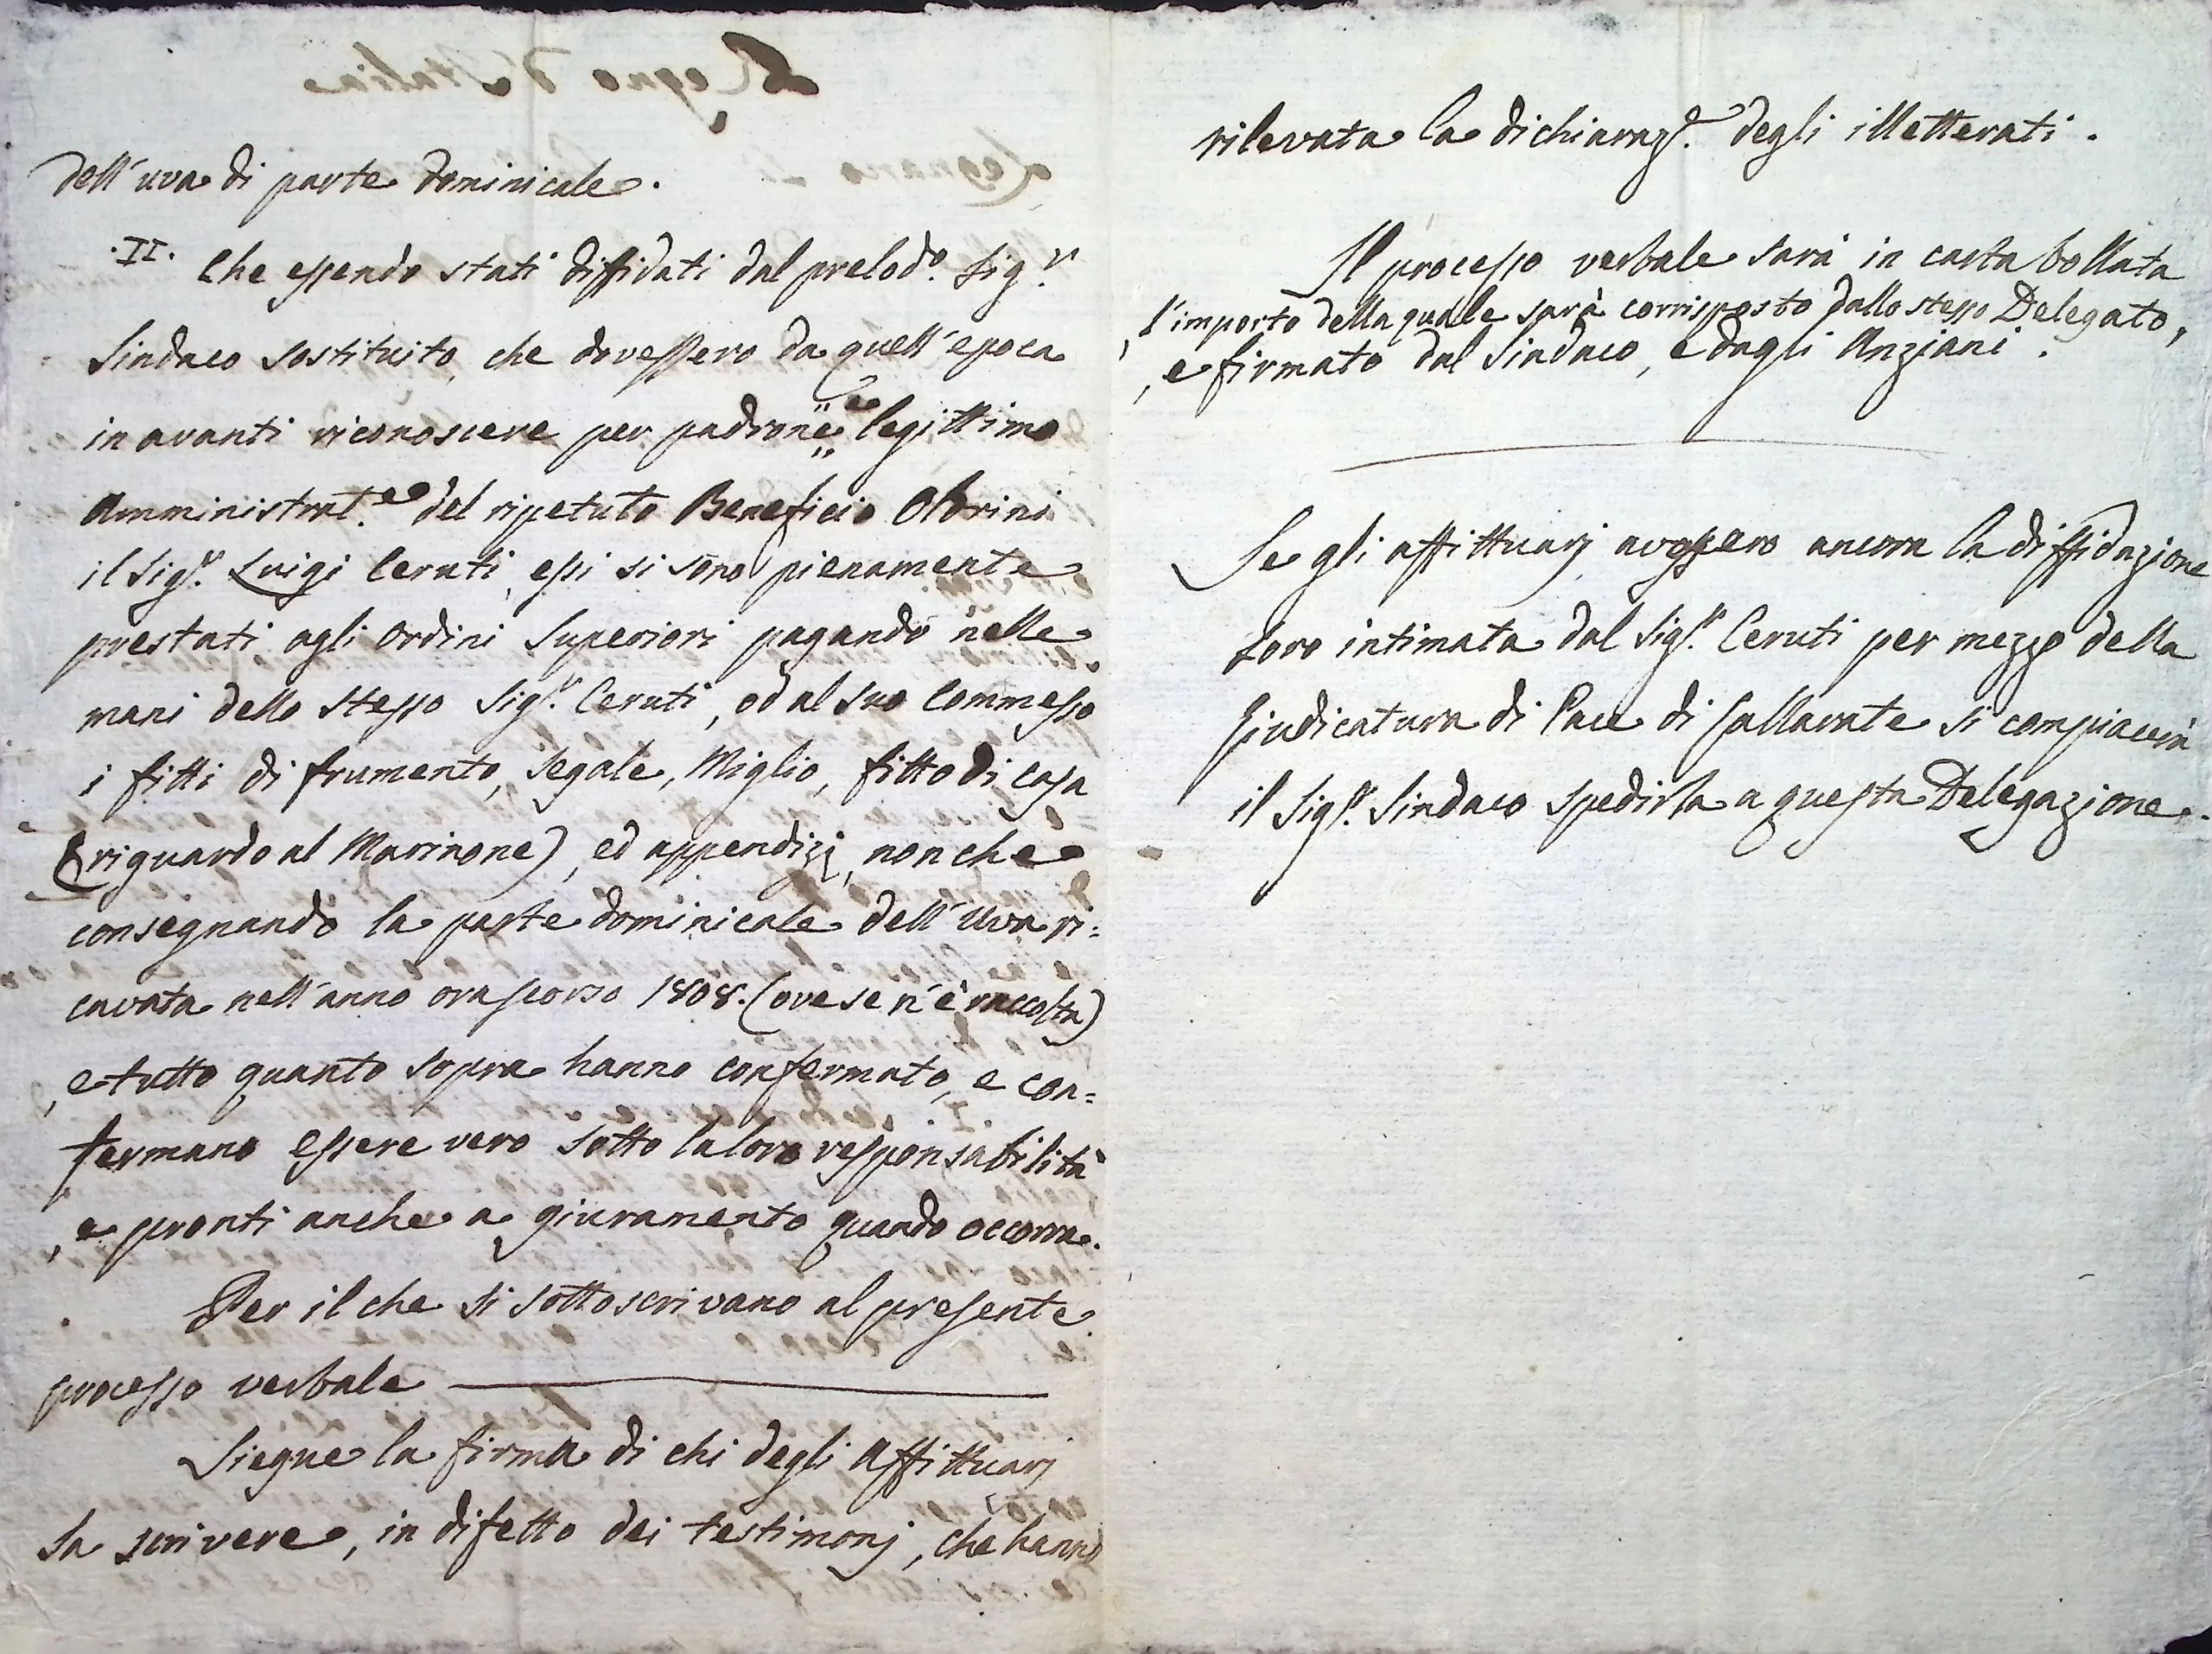 dell'uva di parte dominicale.
.II. Che essendo stati diffidati dal prelod.o Sig.r
Sindaco sostituito, che dovessero da quell'epoca
in avanti riconoscere per padrone, e legittimo
Amministrat.e del ripetuto Beneficio Olorini
il Sig.r Luigi Ceruti, essi si sono pienamente
prestati agli ordini Superiori pagando nelle
mani dello stesso Sig.r Ceruti, od al suo Commesso
i fitti di frumento, Segale, Miglio, fitto di casa
(riguardo al Marinone), ed appendizj, non che
consegnando la parte dominicale dell'Uva ri=
cavata nell'anno orascorso 1808. (ove se n'è raccolta)
, e tutto quanto sopra hanno confermato, e con=
fermano essere vero sotto la loro responsabilità
, e pronti anche a giuramento quando occorra.
Per il che si sottoscrivano al presente
processo verbale
Siegue la firma di chi degli Affittuarj
sa scrivere, in difetto dei testimonj, che hanno
rilevata la dichiaraz.e degli illetterati.
Il processo verbale sarà in carta bollata
, l'importo della quale sarà corrisposto dallo stesso Delegato,
, e firmato dal Sindaco, e dagli Anziani.
Se gli affittuarj avessero ancora la diffidazione
loro intimata dal Sig.r Ceruti per mezzo della
Giudicatura di Pace di Gallarate si compiacerà
il Sig.r Sindaco spedirla a questa Delegazione.
Regno d'Italia
Legnano